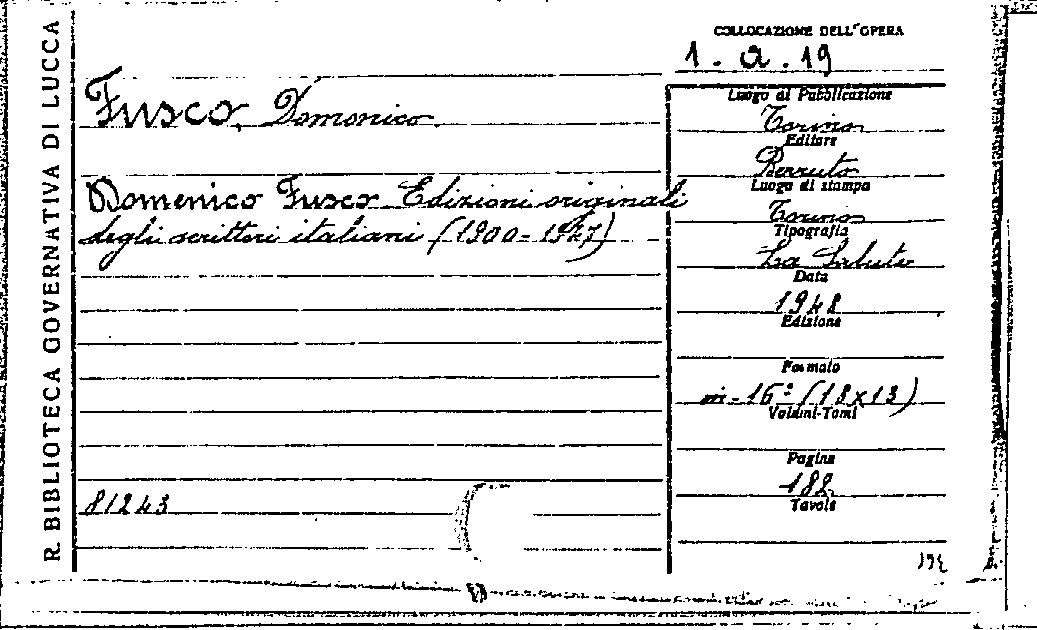 R. BIBLIOTECA GOVERNATIVA DI LUCCA
COLLOCAZIONE DELL'OPERA
1. a. 19
Fusco, Domenico.
Domenico Fusco Edizioni originali
degli scrittori italiani (1900-1947)
81243
Luogo di Pubblicazione
Torino
Editore
Berruto
Luogo di stampa
Torino
Tipografia
La Salute
Data
1948
Edizione
Formato
in-16° (18x13)
Volumi-Tomi
Pagine
182
Tavole